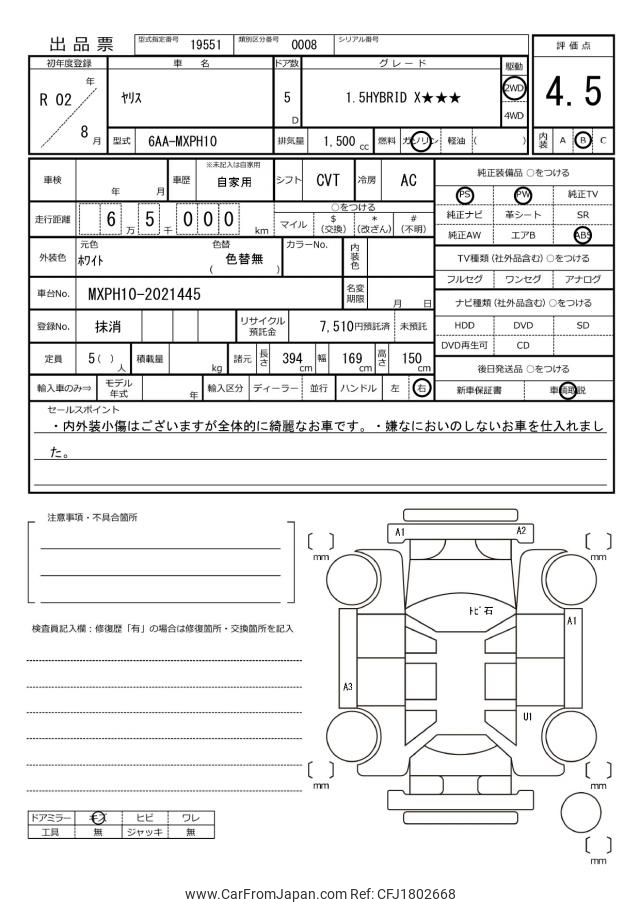 出品票 型式指定番号 19551 類別区分番号 0008 シリアル番号
評価点
4.5
内装 A B C
初年度登録 車名 ドア数 グレード 駆動
R 02 年 8 月 ヤリス 5 D 1.5HYBRID X★★★ 2WD 4WD
型式 6AA-MXPH10 排気量 1,500 cc 燃料 ガソリン 軽油 ( )
車検 年 月 車歴 ※未記入は自家用 自家用 シフト CVT 冷房 AC
走行距離 6 5 万 千 0 0 0 km ○をつける
マイル $(交換) *(改ざん) #(不明)
外装色 元色 ホワイト 色替 ( 色替無 ) カラーNo. 内装色
車台No. MXPH10-2021445 名変期限 月 日
登録No. 抹消 リサイクル預託金 7,510円預託済 未預託
定員 5( ) 人 積載量 kg 諸元 長さ 394 cm 幅 169 cm 高さ 150 cm
輸入車のみ⇒ モデル年式 年 輸入区分 ディーラー 並行 ハンドル 左 右
純正装備品 ○をつける
PS PW 純正TV
純正ナビ 革シート SR
純正AW エアB ABS
TV種類 (社外品含む) ○をつける
フルセグ ワンセグ アナログ
ナビ種類 (社外品含む) ○をつける
HDD DVD SD
DVD再生可 CD
後日発送品 ○をつける
新車保証書 車輌取説
セールスポイント
・内外装小傷はございますが全体的に綺麗なお車です。・嫌なにおいのしないお車を仕入れまし
た。
注意事項・不具合箇所
検査員記入欄：修復歴「有」の場合は修復箇所・交換箇所を記入
A1 A2
mm mm
トビ石
A1
A3
U1
mm mm
mm
ドアミラー キズ ヒビ ワレ
工具 無 ジャッキ 無
www.CarFromJapan.com Ref: CFJ1802668